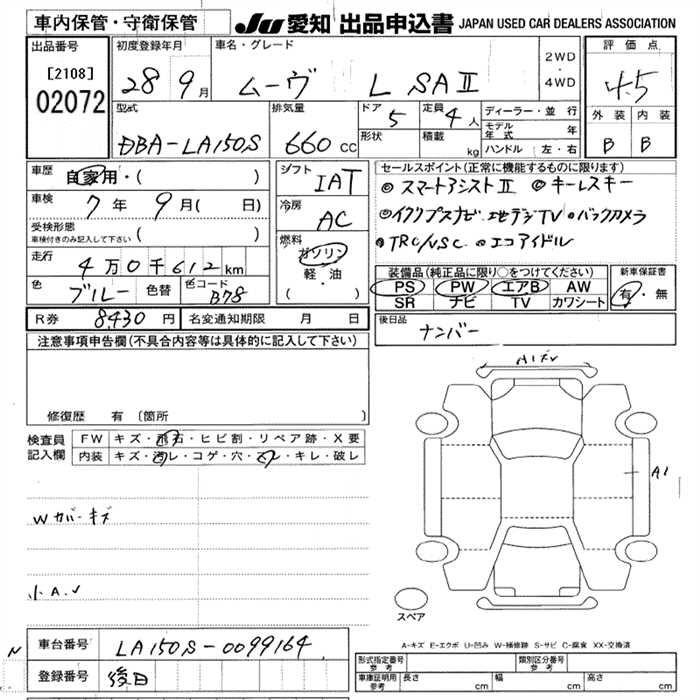 車内保管・守衛保管
JU 愛知 出品申込書 JAPAN USED CAR DEALERS ASSOCIATION
出品番号
[2108]
02072
初度登録年月
28年 9月
車名・グレード
ムーヴ L SAⅡ
2WD
・
4WD
評価点
4.5
外装 内装
B B
型式
DBA-LA150S
排気量
660 cc
ドア
5
定員
4人
形状
積載 kg
ディーラー・並行
モデル年式 年
ハンドル 左・右
車歴
自家用・( )
車検
7年 9月( 日)
受検形態
車検付きのみ記入して下さい ( )
走行
4万0千612km
色
ブルー
色替
色コード
B78
シフト
IAT
冷房
AC
燃料
ガソリン
軽・油
( )
セールスポイント(正常に機能するものに限ります)
◎スマートアシストⅡ ◎キーレスキー
◎イクリプスナビ 地デジTV ◎バックカメラ
◎TRC/VSC ◎エコアイドル
装備品(純正品に限り○をつけてください)
PS PW エアB AW
SR ナビ TV カワシート
新車保証書
有・無
R券 8430円
名変通知期限 月 日
後日品
ナンバー
注意事項申告欄(不具合内容等は具体的に記入して下さい)
修復歴 有 〔箇所
検査員記入欄
FW キズ・飛石・ヒビ割・リペア跡・X要
内装 キズ・汚レ・コゲ・穴・スレ・キレ・破レ
Wカバーキズ
小A.U
A1
A1
スペア
A-キズ E-エクボ U-凹み W-補修跡 S-サビ C-腐食 XX-交換済
N
車台番号 LA150S-0099164
登録番号 後日
形式指定番号 参考
類別区分番号 参考
車庫証明用 参考 長さ cm 幅 cm 高さ cm